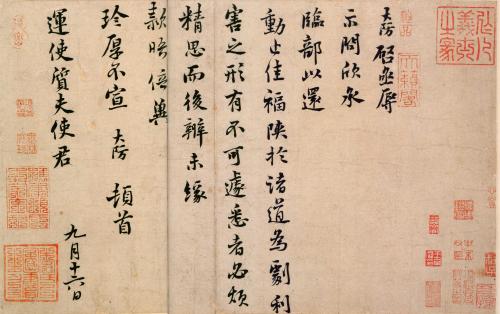 大防啟亟辱
示問欣承
臨部以還
動止佳福陝於諸道為劇利
害之形有不可遽悉者必煩
精思而後辨未緣
款晤倍冀
珍厚不宣 大防 頓首
運使質夫使君
九月十六日